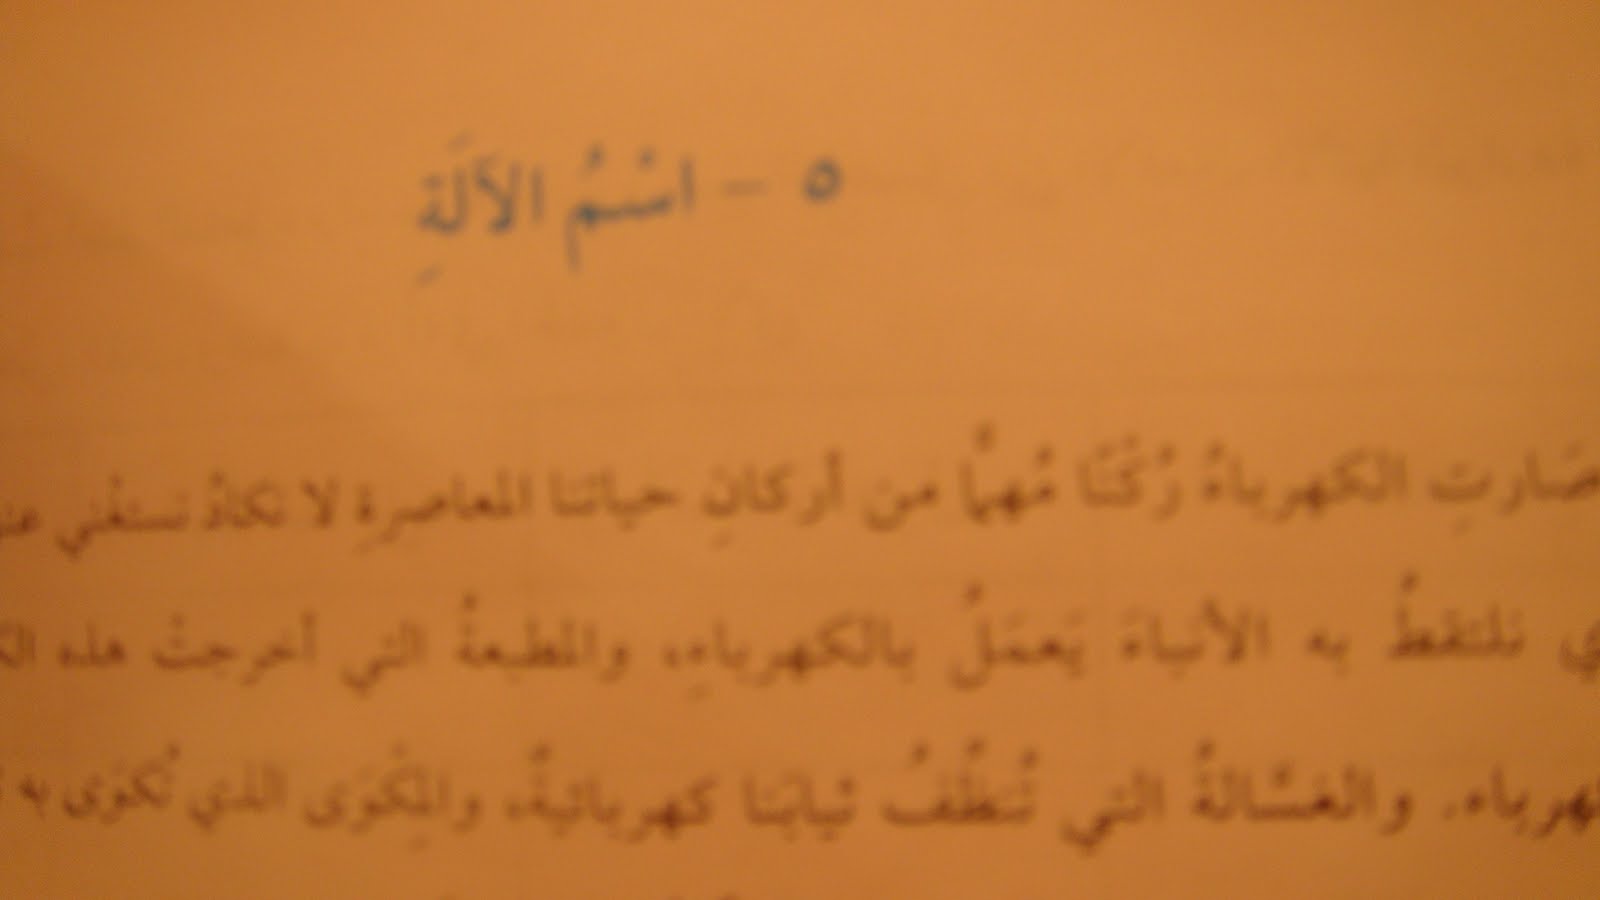 ٥ – اسْمُ الآلَةِ
صَارتِ الكهرباءُ رُكْنًا مُهِمًّا من أركانِ حياتنا المعاصرةِ لا نكادُ نستغْني
نلتقطُ به الأنباءَ يَعمَلُ بالكهرباءِ، والمطبعةُ التي أخرجتْ هذه
والغسَّالةُ التي تُنَظِّفُ ثيابَنا كهربائيةٌ، والمِكْوَى الذي تُكوَى به